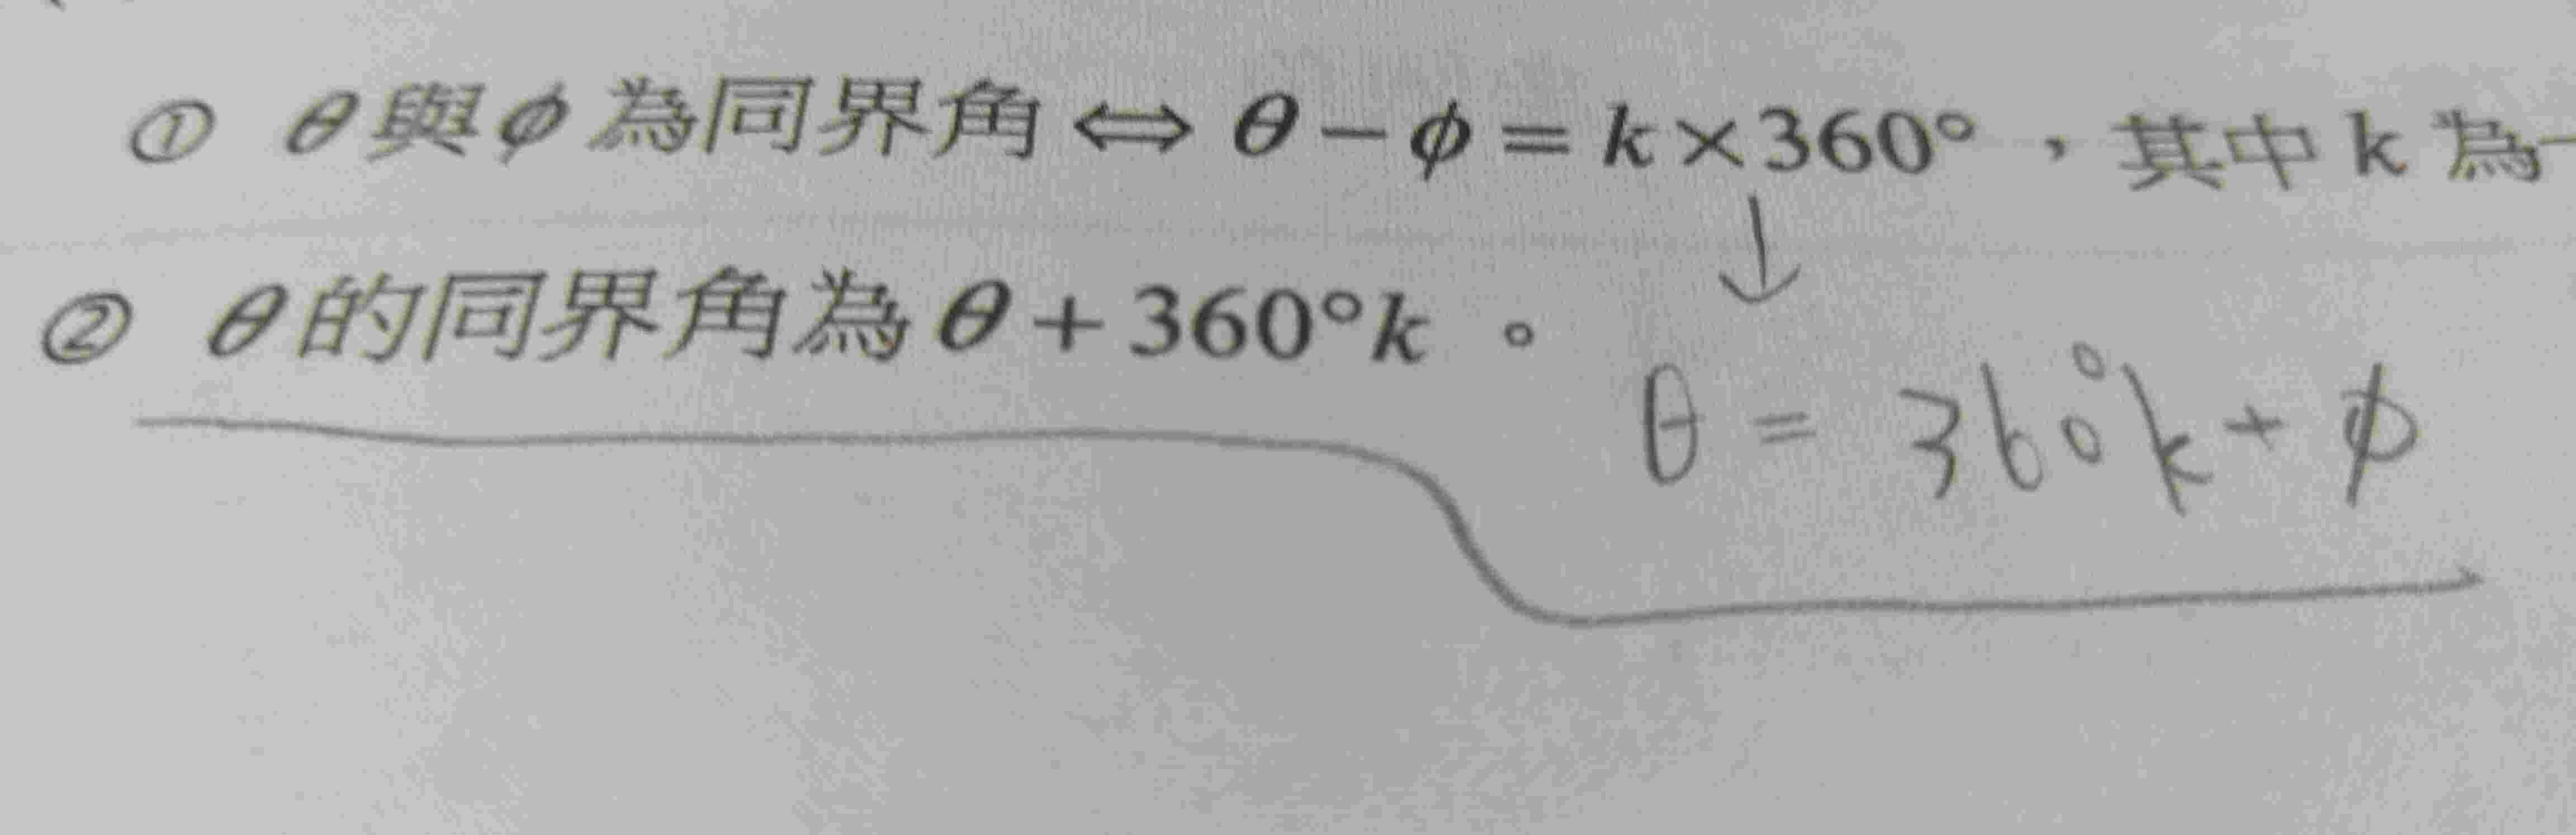 ① θ與ϕ為同界角⇔θ−ϕ=k×360°，其中k為一
↓
② θ的同界角為θ+360°k。
θ = 360°k + ϕ